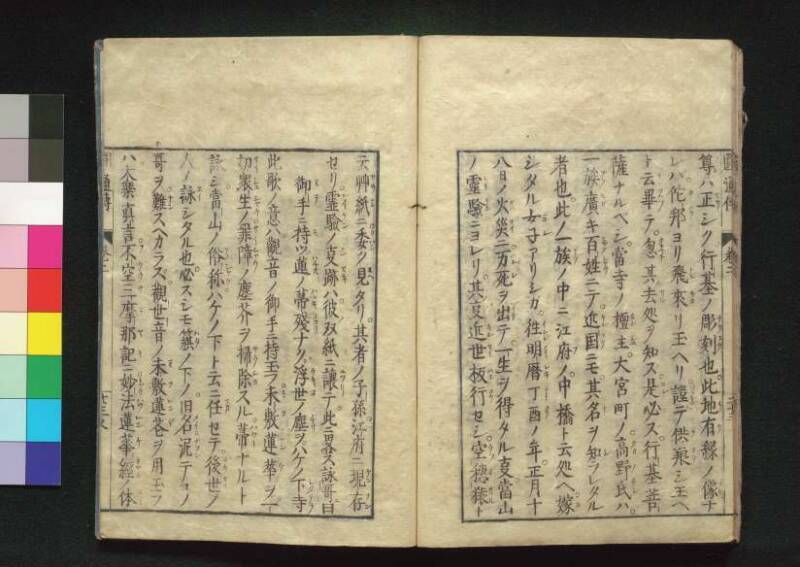 尊ハ正シク行基ノ彫刻也此地有縁ノ像ナ
レハ佗邦ヨリ飛来リ玉ヘリ謹テ供養シ玉ヘ
ト云畢テ忽其去処ヲ知ス是必ス行基菩
薩ナルベシ當寺ノ檀主大宮町ノ高野氏ハ
一族廣キ百姓ニテ近国ニモ其名ヲ知ラレタル
者也此ノ一族ノ中ニ江府ノ中橋ト云処ヘ嫁
シタル女子アリシカ往明暦丁酉ノ年正月十
八日ノ火災ニ万死ヲ出テ一生ヲ得タル叓當山
ノ霊驗ニヨレリ其叓近世板行セシ空穂猿ト
云艸紙ニ委ク見タリ其者ノ子孫江府ニ現存
セリ霊驗ノ叓跡ハ彼双紙ニ譲テ此ニ畧ス詠哥曰
御手ニ持ツ蓮ノ蒂残ナク浮世ノ塵ヲハケノ下寺
此歌ノ意ハ觀音ノ御手ニ持玉フ未敷蓮華ヲ一
切衆生ノ罪障ノ塵芥ヲ掃除スル蒂ナルト
詠シ當山ノ俗称ハケノ下ト云ニ任セテ後世ノ
人ノ詠シタル也必スシモ籏ノ下ノ旧名ニ泥テコノ
哥ヲ難スヘカラス觀世音ノ未敷蓮花ヲ用玉フ
ハ大樂眞言不空三摩耶記ニ妙法蓮華經ノ体
圓通傳
卷二